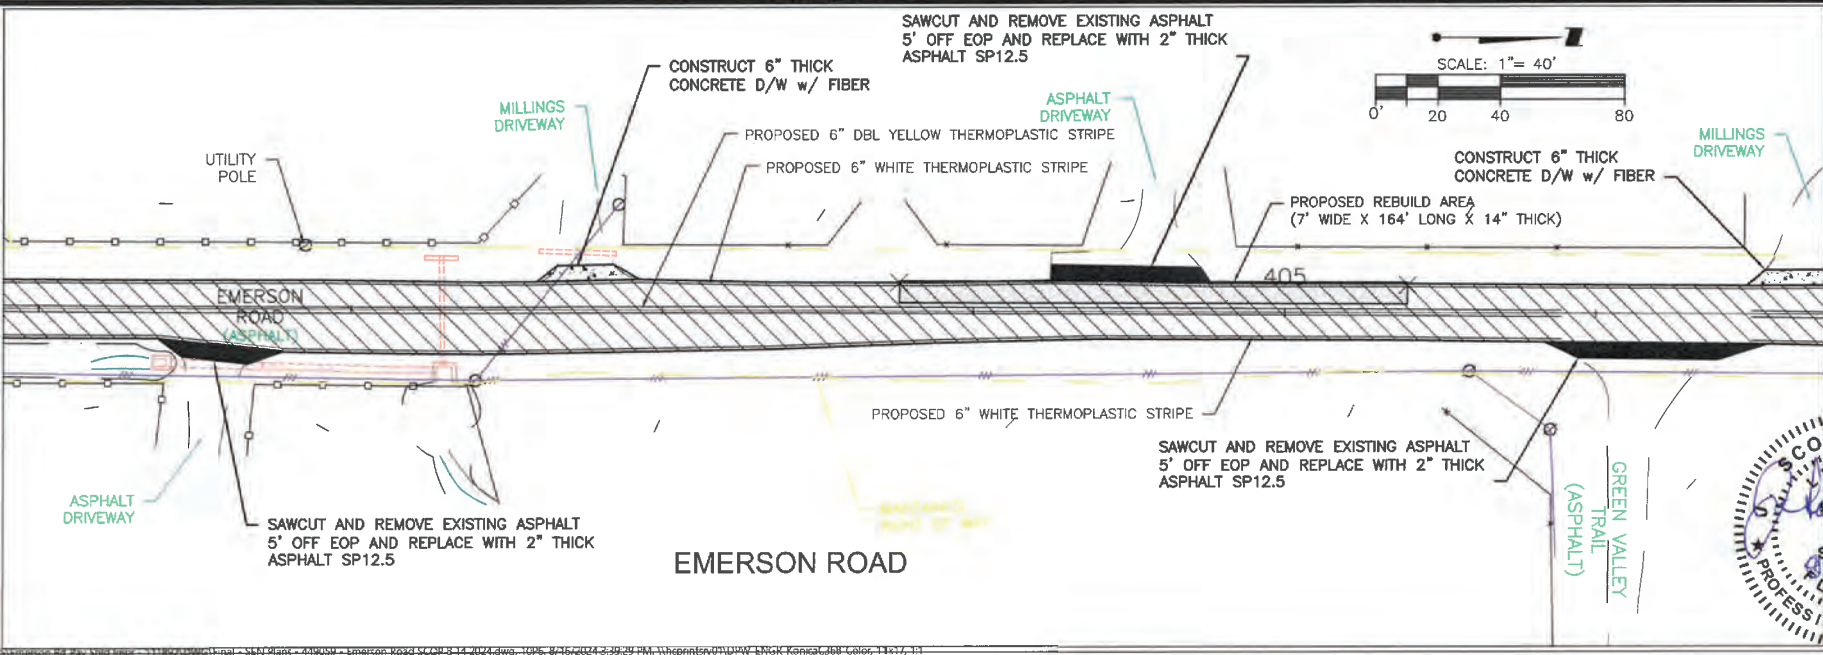 SAWCUT AND REMOVE EXISTING ASPHALT
5' OFF EOP AND REPLACE WITH 2" THICK
ASPHALT SP12.5
SCALE: 1"= 40'
0'
20
40
80
CONSTRUCT 6" THICK
CONCRETE D/W w/ FIBER
MILLINGS
DRIVEWAY
ASPHALT
DRIVEWAY
PROPOSED 6" DBL YELLOW THERMOPLASTIC STRIPE
PROPOSED 6" WHITE THERMOPLASTIC STRIPE
UTILITY
POLE
MILLINGS
DRIVEWAY
CONSTRUCT 6" THICK
CONCRETE D/W w/ FIBER
PROPOSED REBUILD AREA
(7' WIDE X 164' LONG X 14" THICK)
405
EMERSON
ROAD
(ASPHALT)
PROPOSED 6" WHITE THERMOPLASTIC STRIPE
SAWCUT AND REMOVE EXISTING ASPHALT
5' OFF EOP AND REPLACE WITH 2" THICK
ASPHALT SP12.5
ASPHALT
DRIVEWAY
SAWCUT AND REMOVE EXISTING ASPHALT
5' OFF EOP AND REPLACE WITH 2" THICK
ASPHALT SP12.5
EMERSON ROAD
GREEN VALLEY
TRAIL
(ASPHALT)
SCO
PROFESS